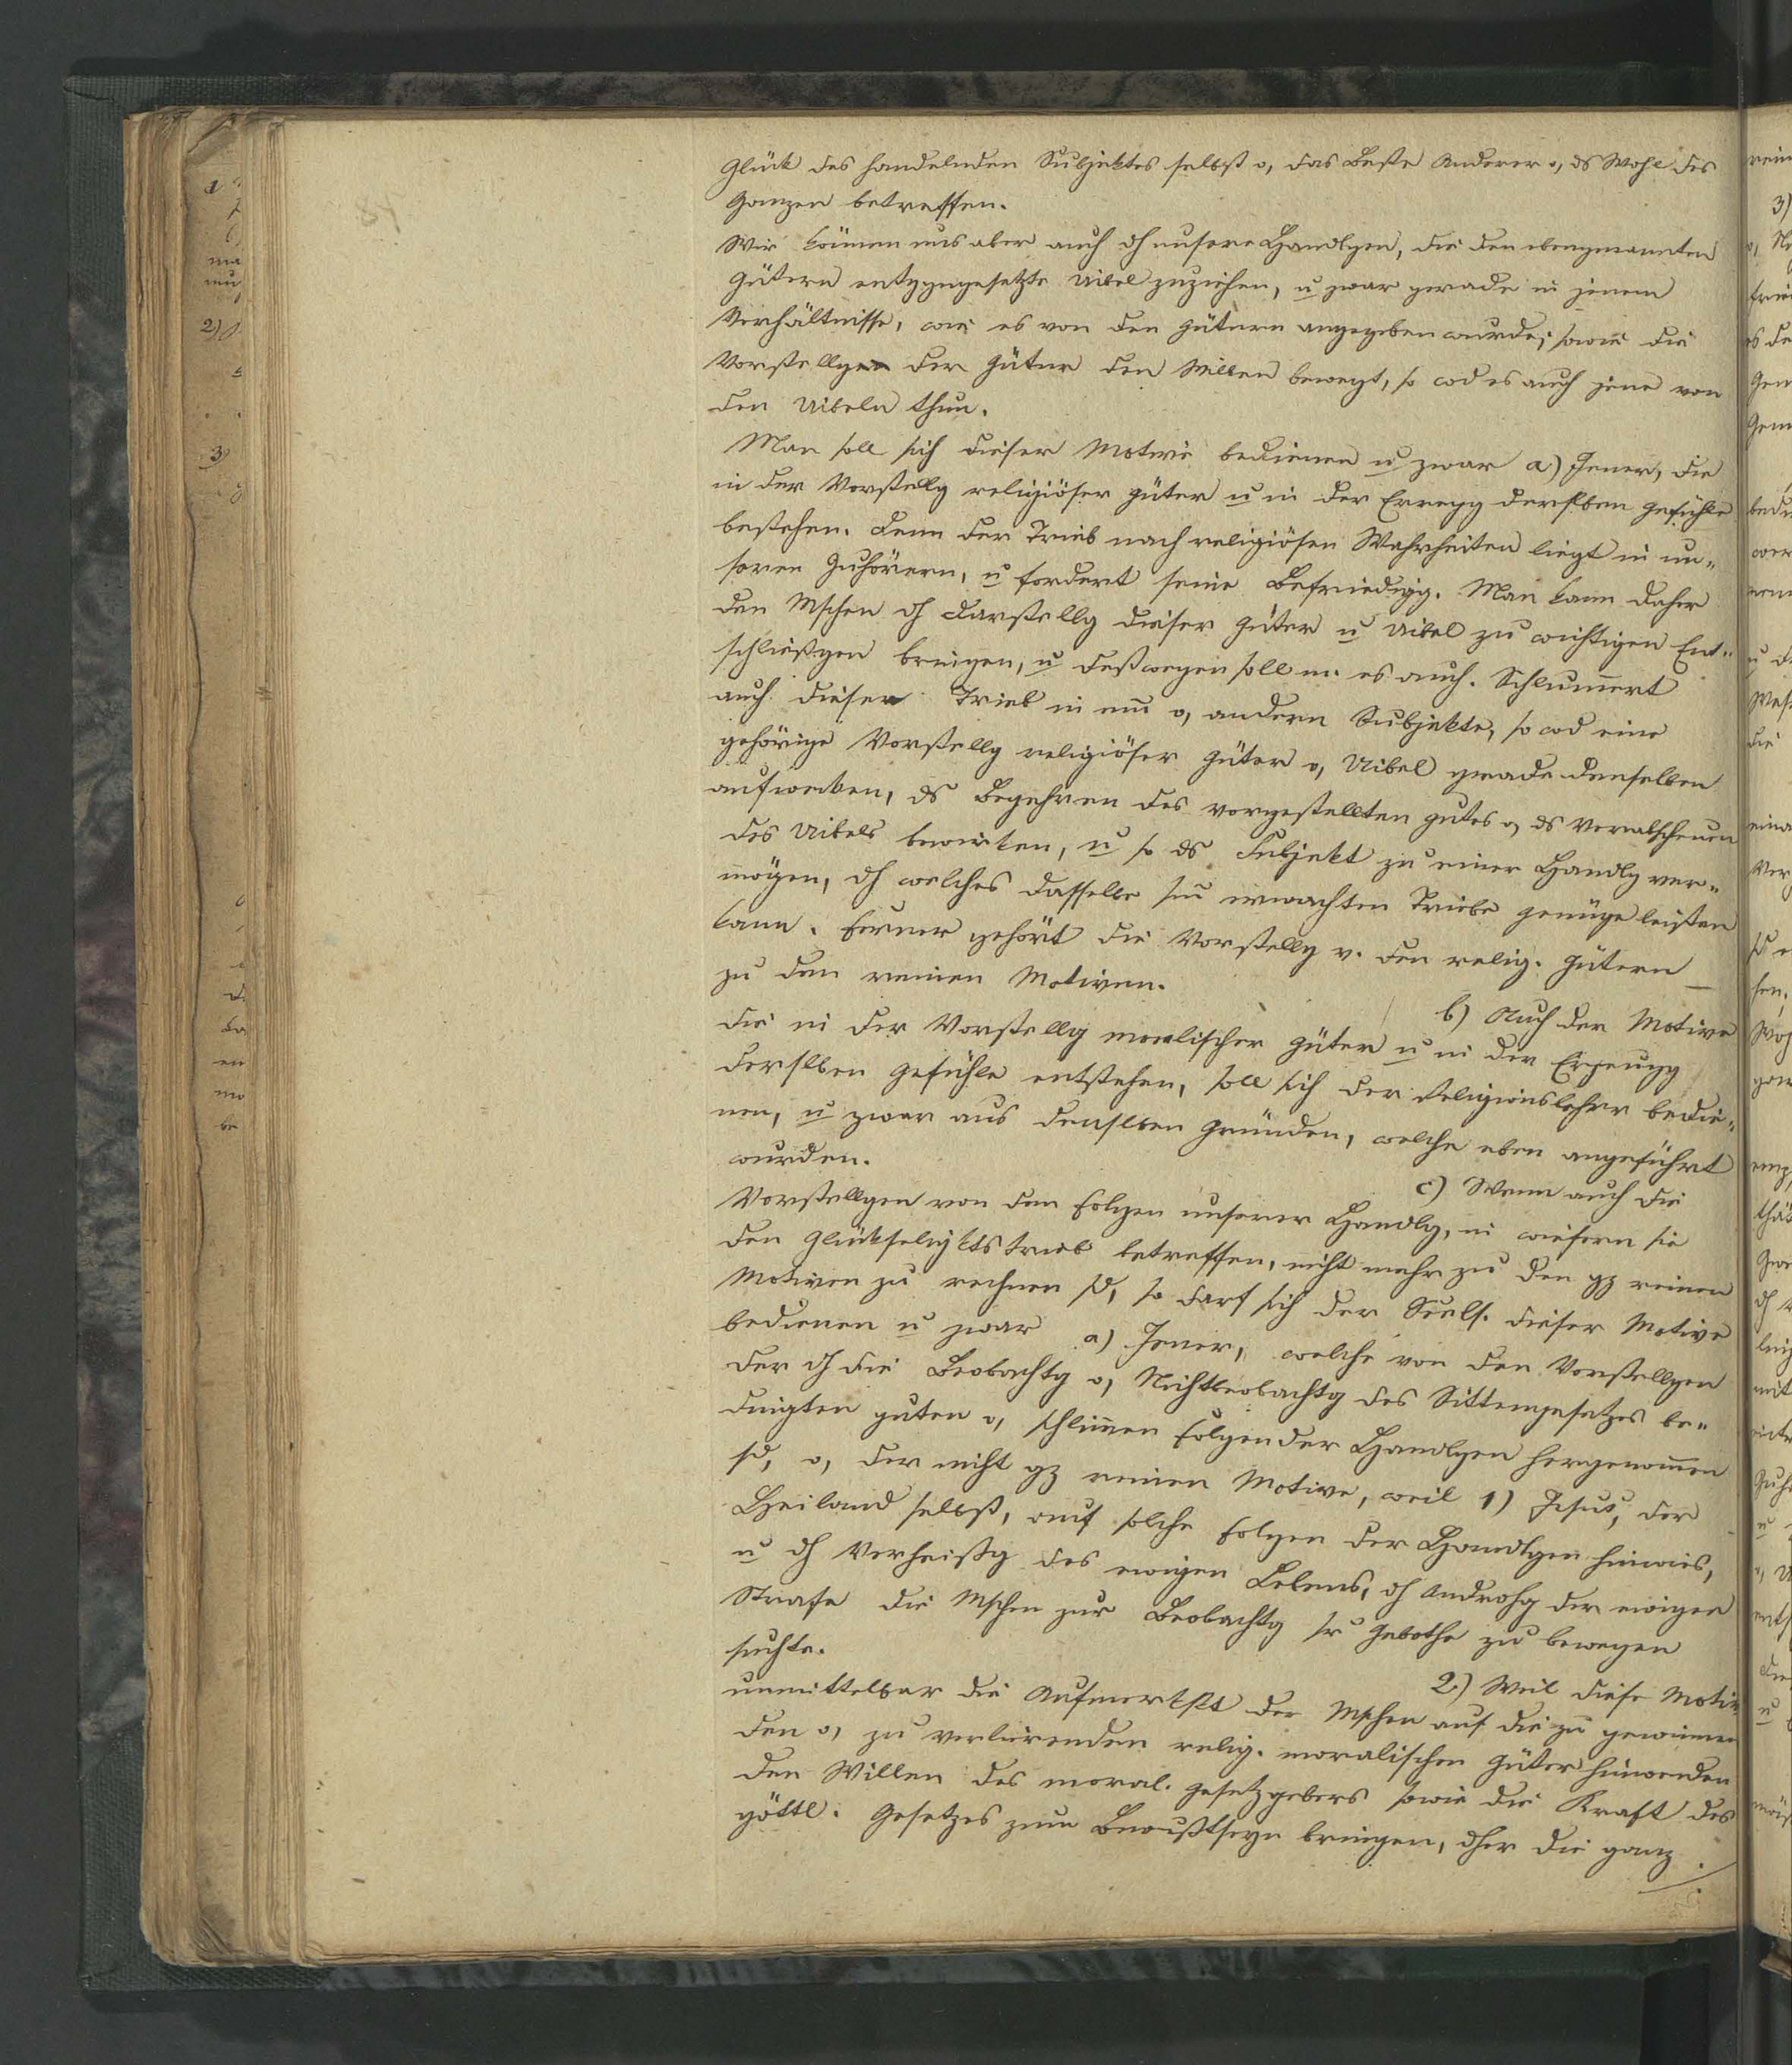 Glück des handelnden Subjektes selbst o, das Beste Anderer o, ds Wohl des
Ganzen betreffen.
Wir können uns aber auch dh unsere Handlgen, die den obengenannten
Gütern entgegengesetzte Uibel zuziehen, u zwar gerade in jenem
Verhältnisse, wie es von den Gütern angegeben wurde; sowie die
Vorstellgen der Güter den Willen bewegt, so wd es auch jene von
den Uibeln thun.
Man soll sich dieser Motive bedienen u zwar a) Jener, die
in der Vorstellg religiöser Güter u in der Erregg derslben Gefühle
bestehen. Denn der Trieb nach religiösen Wahrheiten liegt in un„
seren Zuhörern, u fordert seine Befriedigg. Man kann daher
den Mschen dh Darstellg dieser Güter u Uibel zu wichtigen Ent„
schließgen bringen, u deßwegen soll m. es auch. Schlummert
auch dieser Trieb in em o, andern Subjekte, so wd eine
gehörige Vorstellg religiöser Güter o, Uibel grade denselben
aufwecken, ds Begehren des vorgestellten Gutes o, ds Verabscheuen
des Uibels bewirken, u so ds Subjekt zu einer Handlg ver„
mögen, dh welches dasselbe sm erwachten Triebe genüge leisten
kann. Ferner gehört die Vorstellg v. den relig. Gütern
zu den reinen Motiven.
b) Auch der Motive
die in der Vorstellg moralischer Güter u in der Erzeugg
derslben Gefühle entstehen, soll sich der Religionslehrer bedie„
nen, u zwar aus denslben Gründen, welche eben angeführt
wurden.
c) Wenn auch die
Vorstellgen von den Folgen unserer Handlg, in wiefern sie
den Glükseligktstrieb betreffen, nicht mehr zu den gz reinen
Motiven zu rechnen sd, so darf sich der Seels. dieser Motive
bedienen u zwar a) Jener, welche von den Vorstellgen
der dh die Beobachtg o, Nichtbeobachtg des Sittengesetzes be„
dingten guten o, schlimen Folgen der Handlgen hergenommen
sd, o, der nicht gz reinen Motive, weil 1) Jesus, der
Heiland selbst, auf solche Folgen der Handlgen hinwies,
u dh Verheißg des ewigen Lebens, dh Androhg der ewigen
Strafe die Mschen zur Beobachtg sr Gebothe zu bewegen
suchte.
2.) Weil diese Motive
unmittelbar die Aufmerkskt der Mschen auf die zu gewinnen
den o, zu verlierenden relig. moralischen Güter hinwenden
den Willen des moral. Gesetzgebers sowie die Kraft des
göttl. Gesetzes zum Bewußtseyn bringen, dher die ganz